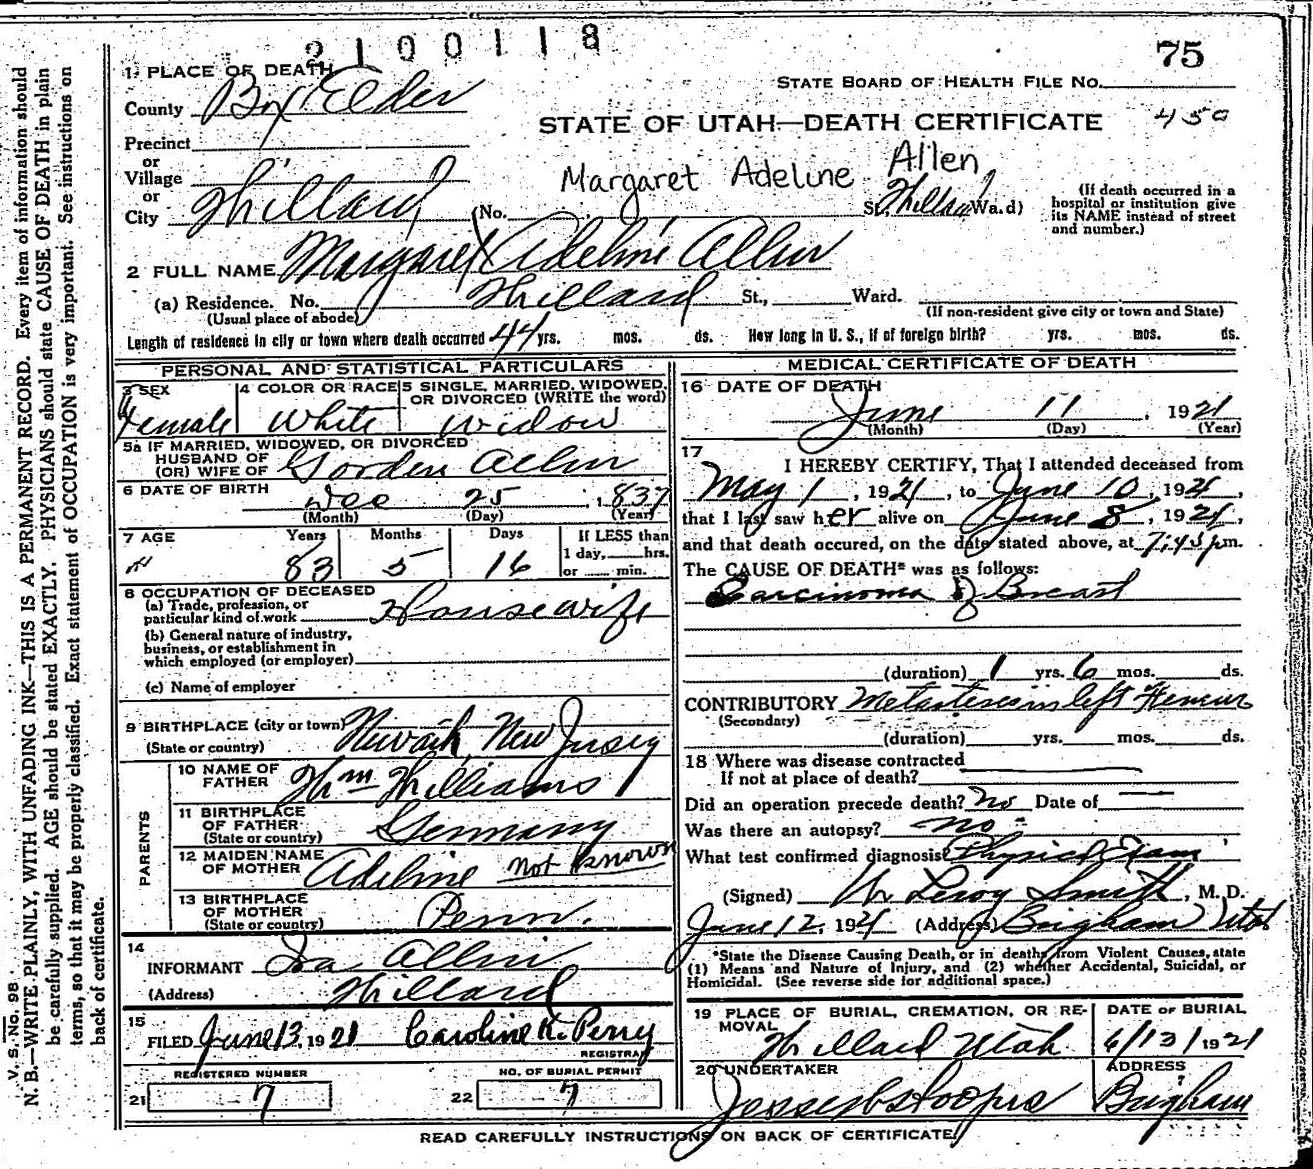 2100118
75
1 PLACE OF DEATH
STATE BOARD OF HEALTH FILE No.
County Box Elder
STATE OF UTAH—DEATH CERTIFICATE 450
Precinct
or
Village
or
City Willard (No. St., Willard Ward)
Margaret Adeline Allen
(If death occurred in a hospital or institution give its NAME instead of street and number.)
2 FULL NAME Margaret Adeline Allen
(a) Residence. No. Willard St., Ward.
(Usual place of abode) (If non-resident give city or town and State)
Length of residence in city or town where death occurred 44 yrs. mos. ds. How long in U. S., if of foreign birth? yrs. mos. ds.
PERSONAL AND STATISTICAL PARTICULARS
3 SEX Female
4 COLOR OR RACE White
5 SINGLE, MARRIED, WIDOWED, OR DIVORCED (WRITE the word) Widow
5a IF MARRIED, WIDOWED, OR DIVORCED
HUSBAND OF
(OR) WIFE OF Gorden Allen
6 DATE OF BIRTH Dec 25, 1837
(Month) (Day) (Year)
7 AGE Years Months Days If LESS than
83 5 16 1 day, hrs.
or min.
8 OCCUPATION OF DECEASED
(a) Trade, profession, or
particular kind of work Housewife
(b) General nature of industry,
business, or establishment in
which employed (or employer)
(c) Name of employer
9 BIRTHPLACE (city or town) Newark, New Jersey
(State or country)
PARENTS
10 NAME OF FATHER Wm Williams
11 BIRTHPLACE OF FATHER Germany
(State or country)
12 MAIDEN NAME OF MOTHER Adeline not known
13 BIRTHPLACE OF MOTHER Penn.
(State or country)
14
INFORMANT Ira Allen
(Address) Willard
15
FILED June 13, 1921 Caroline K. Perry
REGISTRAR
REGISTERED NUMBER
21 7
NO. OF BURIAL PERMIT
22 7
MEDICAL CERTIFICATE OF DEATH
16 DATE OF DEATH
June 11, 1921
(Month) (Day) (Year)
17
I HEREBY CERTIFY, That I attended deceased from
May 1, 1921, to June 10, 1921,
that I last saw her alive on June 8, 1921,
and that death occured, on the date stated above, at 7:45 pm.
The CAUSE OF DEATH* was as follows:
Carcinoma of Breast
(duration) 1 yrs. 6 mos. ds.
CONTRIBUTORY Metastases in left Femur
(Secondary)
(duration) yrs. mos. ds.
18 Where was disease contracted
If not at place of death?
Did an operation precede death? No Date of —
Was there an autopsy? no
What test confirmed diagnosis Physical Exam
(Signed) W. Leroy Smith, M. D.
June 12, 1921 (Address) Brigham Utah
*State the Disease Causing Death, or in deaths from Violent Causes, state
(1) Means and Nature of Injury, and (2) whether Accidental, Suicidal, or
Homicidal. (See reverse side for additional space.)
19 PLACE OF BURIAL, CREMATION, OR REMOVAL
Willard Utah
DATE OF BURIAL
6/13/1921
20 UNDERTAKER
ADDRESS
Brigham
READ CAREFULLY INSTRUCTIONS ON BACK OF CERTIFICATE.
V. S. No. 98
N. B.—WRITE PLAINLY, WITH UNFADING INK—THIS IS A PERMANENT RECORD. Every item of information should
be carefully supplied. AGE should be stated EXACTLY. PHYSICIANS should state CAUSE OF DEATH in plain
terms, so that it may be properly classified. Exact statement of OCCUPATION is very important. See instructions on
back of certificate.